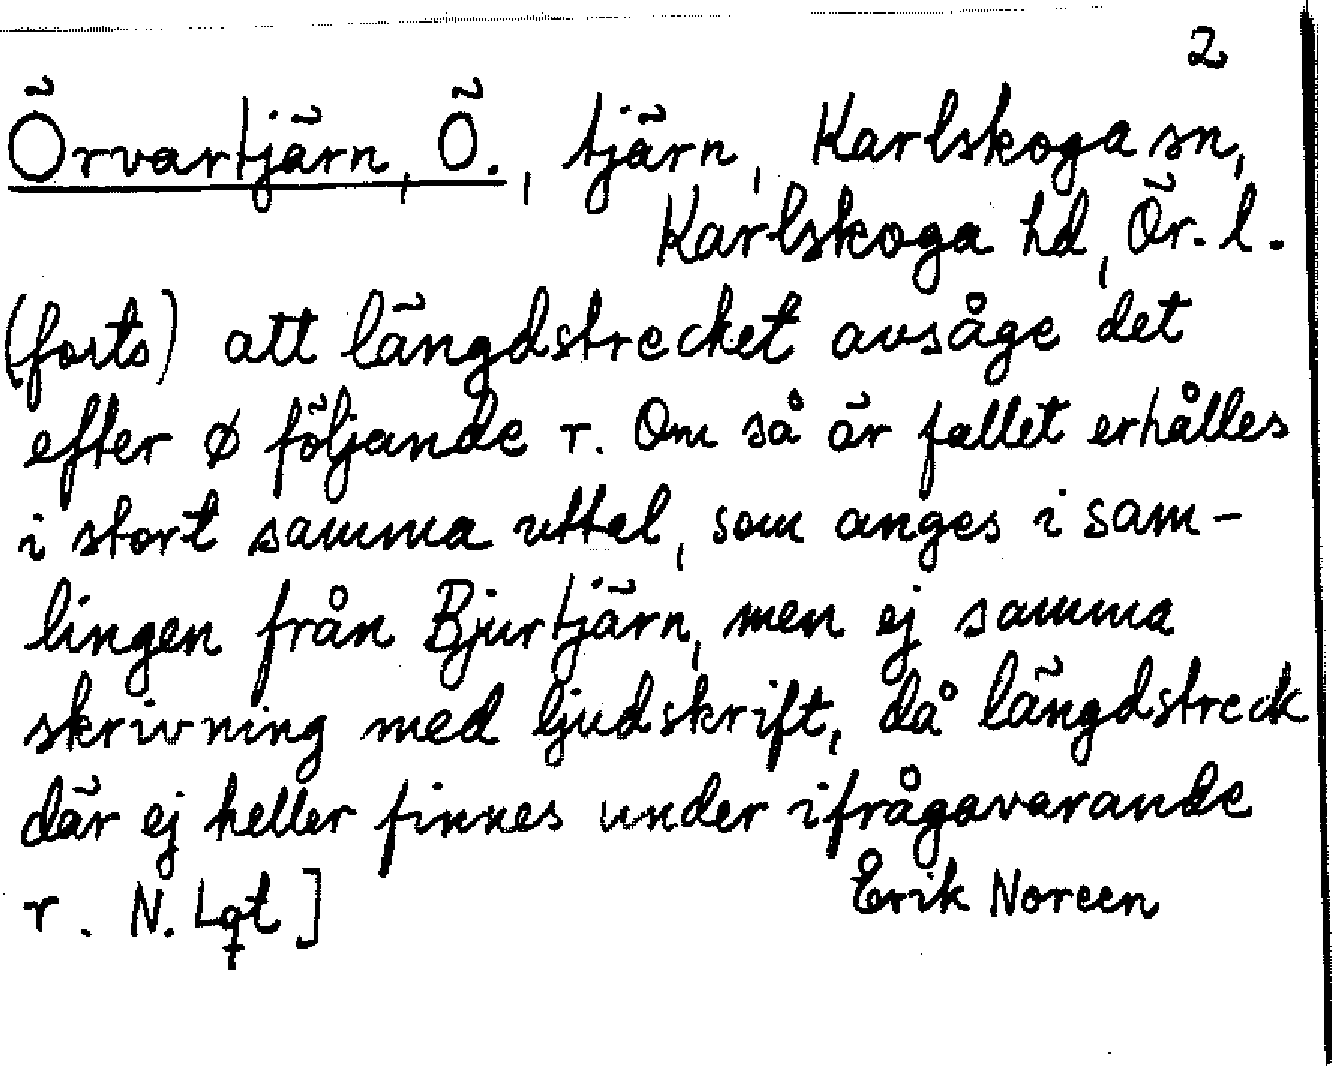 2
Örvartjärn, Ö., tjärn, Karlskoga sn,
Karlskoga hd, Ör. l.
(forts) att längdstrecket avsåge det
efter ø följande r. Om så är fallet erhålles
i stort samma uttal, som anges i sam-
lingen från Bjurtjärn, men ej samma
skrivning med ljudskrift, då längdstreck
där ej heller finnes under ifrågavarande
r. N. Lgt]
Erik Noreen